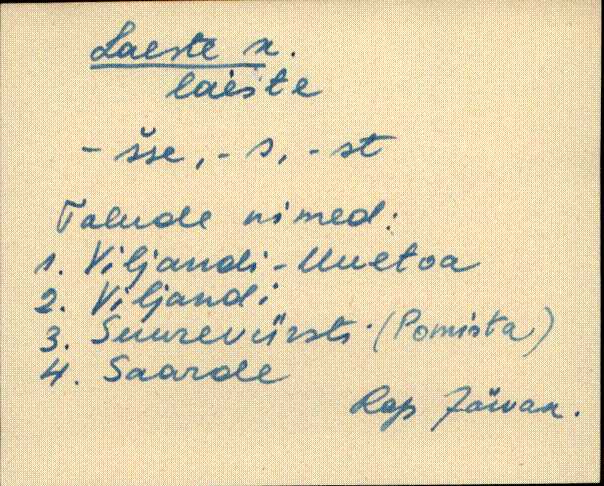 Laeste k.
laeste
- šse, - s, - st
Talude nimed:
1. Viljandi-Uuetoa
2. Viljandi
3. Suurevürsti (Pomista)
4. Saarde
Rap